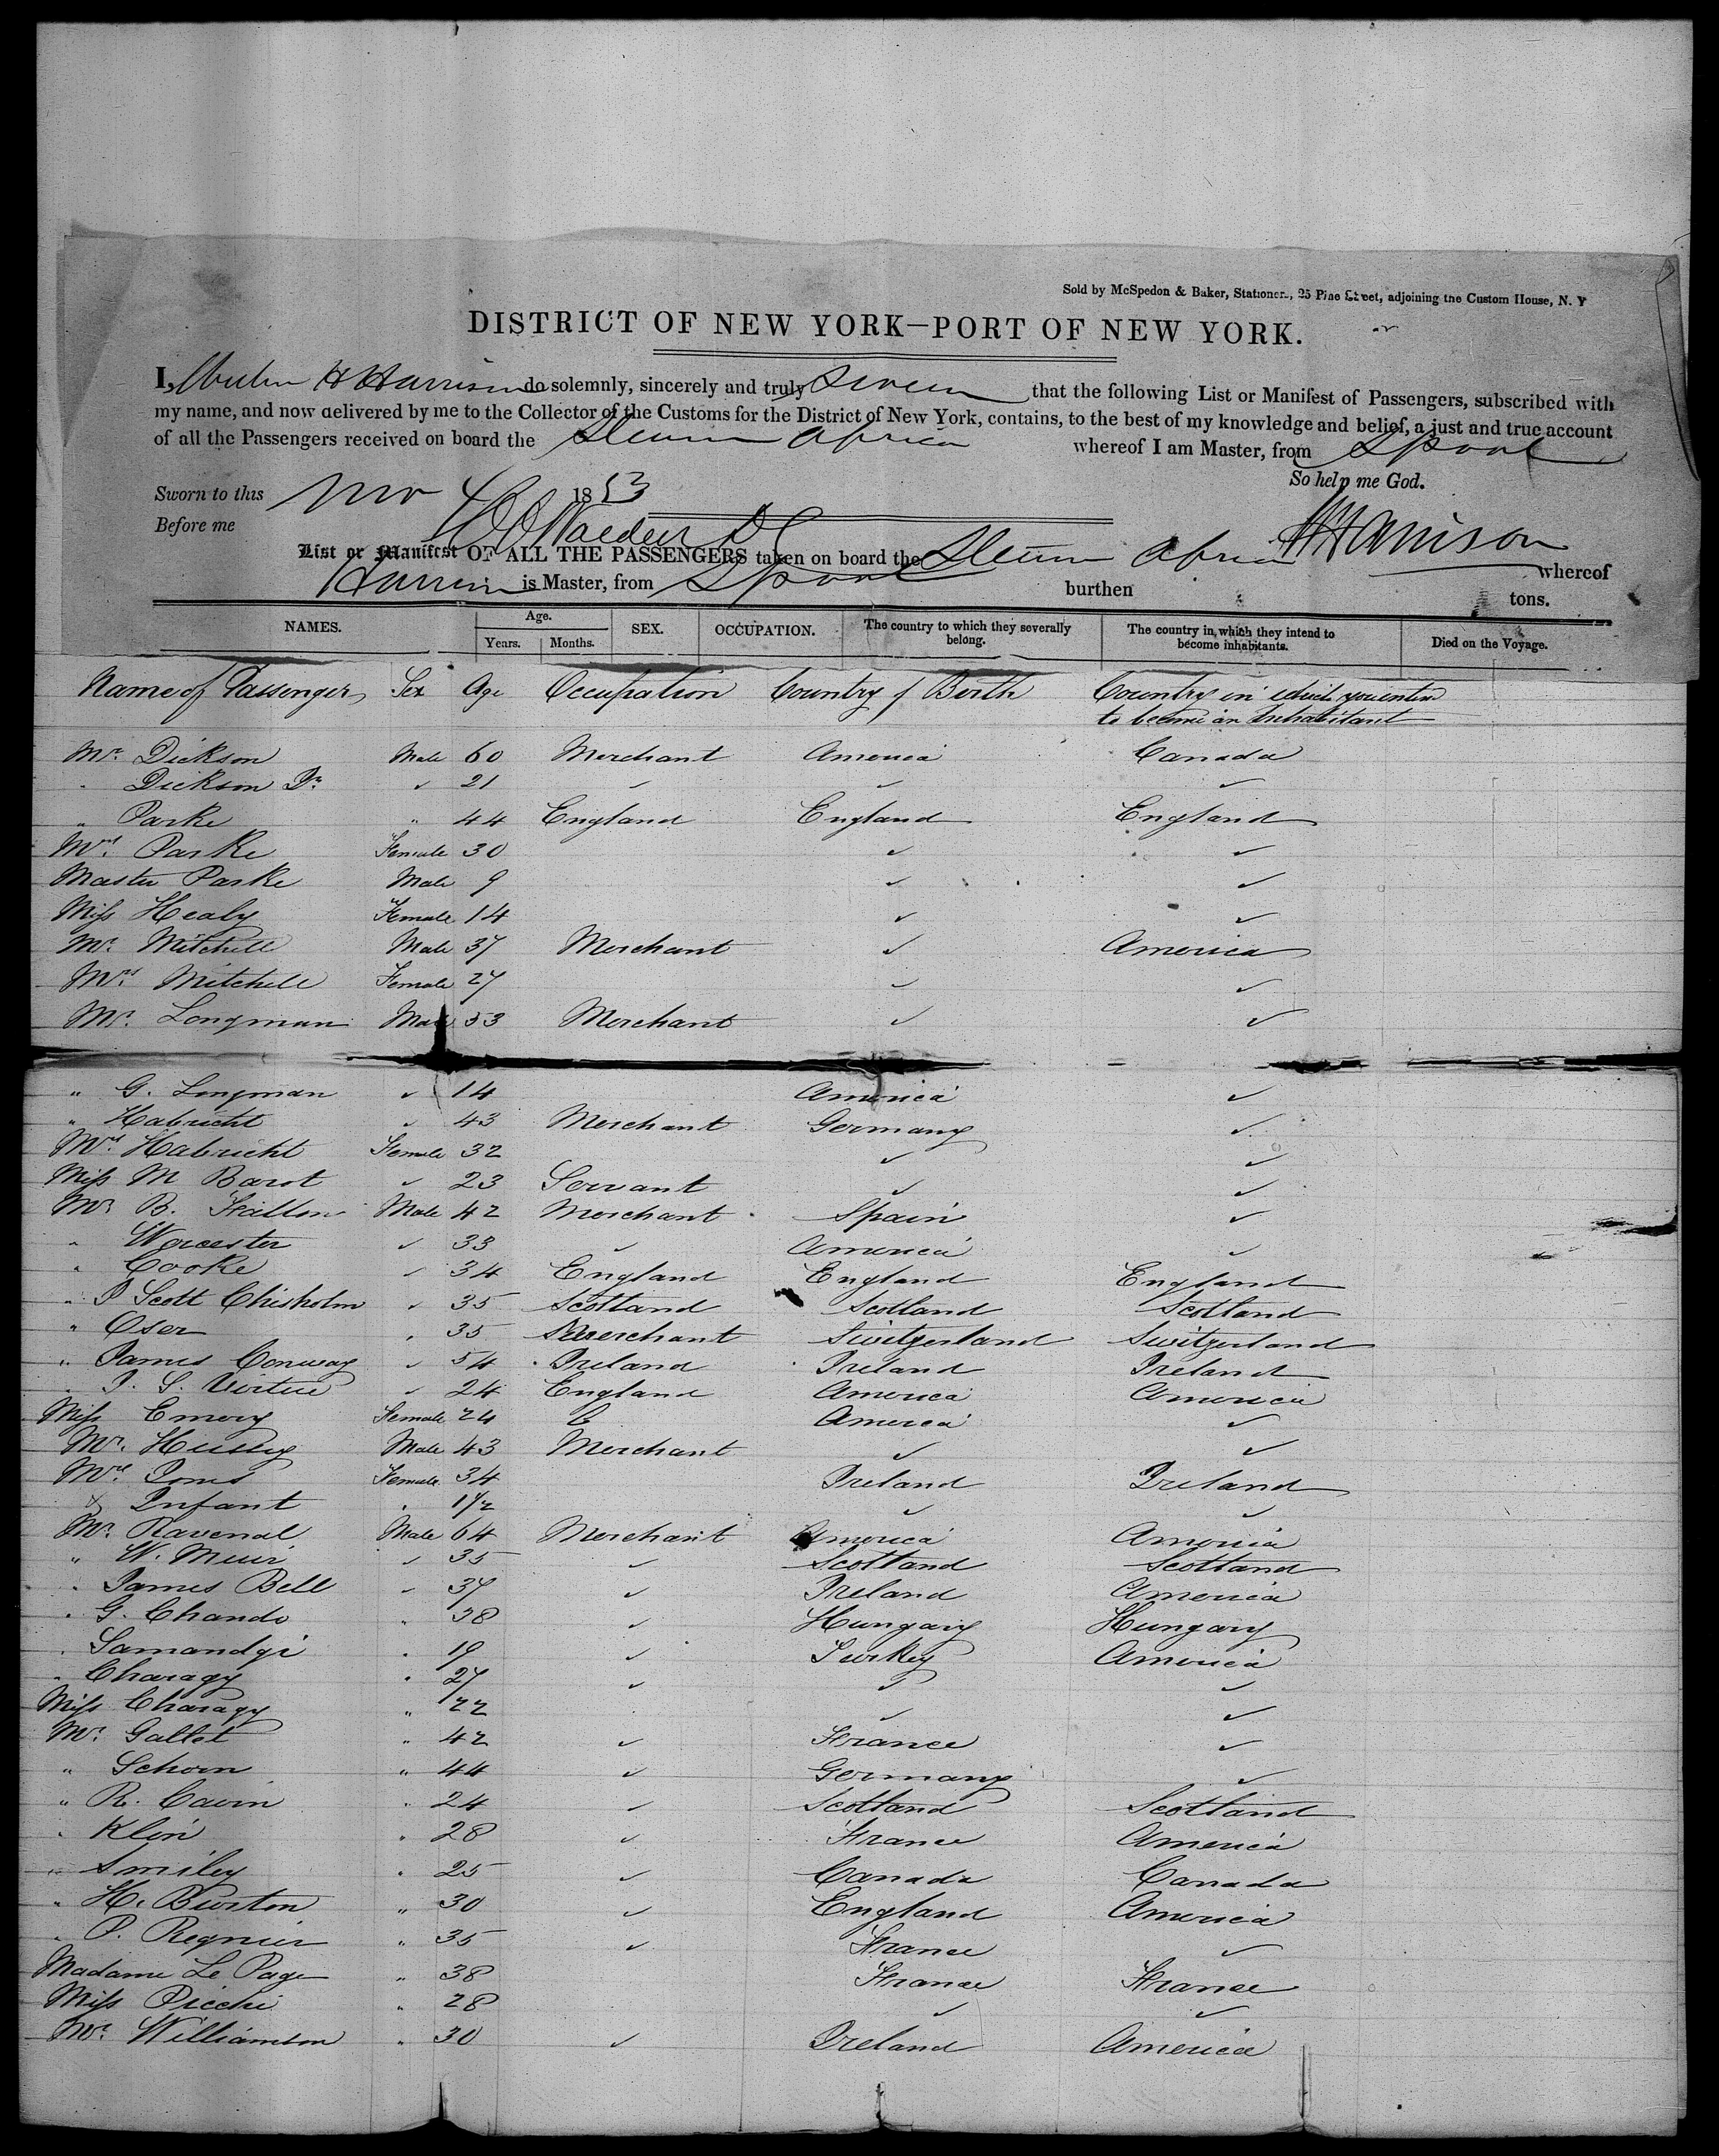 Sold by McSpedon & Baker, Stationers, 25 Pine Street, adjoining the Custom House, N. Y
DISTRICT OF NEW YORK—PORT OF NEW YORK.
I, H Harrison do solemnly, sincerely and truly Swear that the following List or Manifest of Passengers, subscribed with
my name, and now delivered by me to the Collector of the Customs for the District of New York, contains, to the best of my knowledge and belief, a just and true account
of all the Passengers received on board the Steam Africa whereof I am Master, from Lpool
So help me God.
Sworn to this Nov 4 1853
Before me
Harrison
List or Manifest OF ALL THE PASSENGERS taken on board the Steam Africa whereof
Harrison is Master, from Lpool burthen tons.
NAMES. Age. Years. Months. SEX. OCCUPATION. The country to which they severally belong. The country in which they intend to become inhabitants. Died on the Voyage.
Name of Passenger Sex Age Occupation Country of Birth Country in which you intend
to become an Inhabitant
Mr. Dickson Male 60 Merchant America Canada
" Dickson Jr. ✓ 21 ✓ ✓ ✓
" Parke " 44 England England England
Mrs. Parke Female 30 ✓ ✓
Master Parke Male 9 ✓ ✓
Miss Healy Female 14 ✓ ✓
Mr. Mitchell Male 37 Merchant ✓ America
Mrs. Mitchell Female 27 ✓ ✓
Mr. Longman Male 53 Merchant ✓ ✓
" G. Longman ✓ 14 America ✓
" Habricht ✓ 43 Merchant Germany ✓
Mrs. Habricht Female 32 ✓ ✓
Miss M Barot ✓ 23 Servant ✓ ✓
Mr B. Male 42 Merchant Spain ✓
" Worcester ✓ 33 ✓ America ✓
" Cooke ✓ 34 England England England
" J Scott Chisholm ✓ 35 Scotland Scotland Scotland
" Oser " 35 Merchant Switzerland Switzerland
" James Conway ✓ 54 Ireland Ireland Ireland
" J. S. Virtue ✓ 24 England America America
Miss Emory Female 24 America ✓
Mr. Hussey Male 43 Merchant ✓ ✓
Mrs. Jones Female 34 Ireland Ireland
& Infant " 1½ ✓ ✓
Mr. Ravenal Male 64 Merchant America America
" W. Muir ✓ 35 ✓ Scotland Scotland
" James Bell ✓ 37 ✓ Ireland America
" G. Chando " 38 ✓ Hungary Hungary
" Samandgi " 19 ✓ Turkey America
" Charagy " 27 ✓ ✓ ✓
Miss Charagy " 22 ✓ ✓
Mr. Gallot " 42 ✓ France ✓
" Schorn " 44 ✓ Germany ✓
" R. Cavin " 24 ✓ Scotland Scotland
" Klein " 28 ✓ France America
" Smiley " 25 ✓ Canada Canada
" H. Burton " 30 ✓ England America
" P. Regnier " 35 ✓ France ✓
Madame Le Page " 38 France France
Miss Picchi " 28 ✓ ✓
Mr. Williamson " 30 ✓ Ireland America